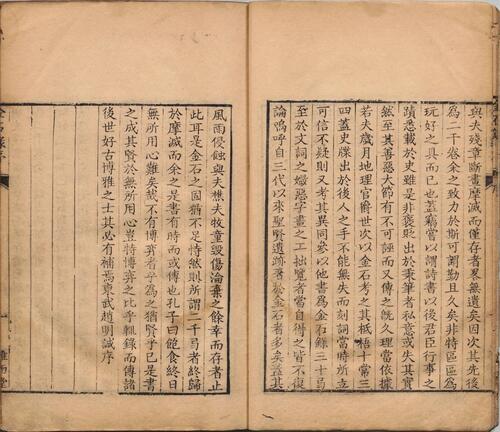 與夫殘章斷畫摩滅而僅存者畧無遺矣因次其先後
為二千卷余之致力於斯可謂勤且久矣非特區區為
玩好之具而已也蓋竊嘗以謂詩書以後君臣行事之
蹟悉載於史雖是非褒貶出於秉筆者私意或失其實
然至其善惡大節有不可誣而又傳之既久理當依據
若夫歲月地理官爵世次以金石考之其抵牾十常三
四蓋史牒出於後人之手不能無失而刻詞當時所立
可信不疑則又考其異同參以他書為金石錄三十弓
至於文詞之媺惡字畫之工拙覽者當自得之皆不復
論嗚呼自三代以來聖賢遺跡著於金石者多矣蓋其
風雨侵蝕與夫樵夫牧童毀傷淪棄之餘幸而存者止
此耳是金石之固猶不足恃然則所謂二千弓者終歸
於摩滅而余之是書有時而或傳也孔子曰飽食終日
無所用心難矣哉不有博弈者乎為之猶賢乎已是書
之成其賢於無所用心豈特博弈之比乎輒錄而傳諸
後世好古博雅之士其必有補焉東武趙明誠序